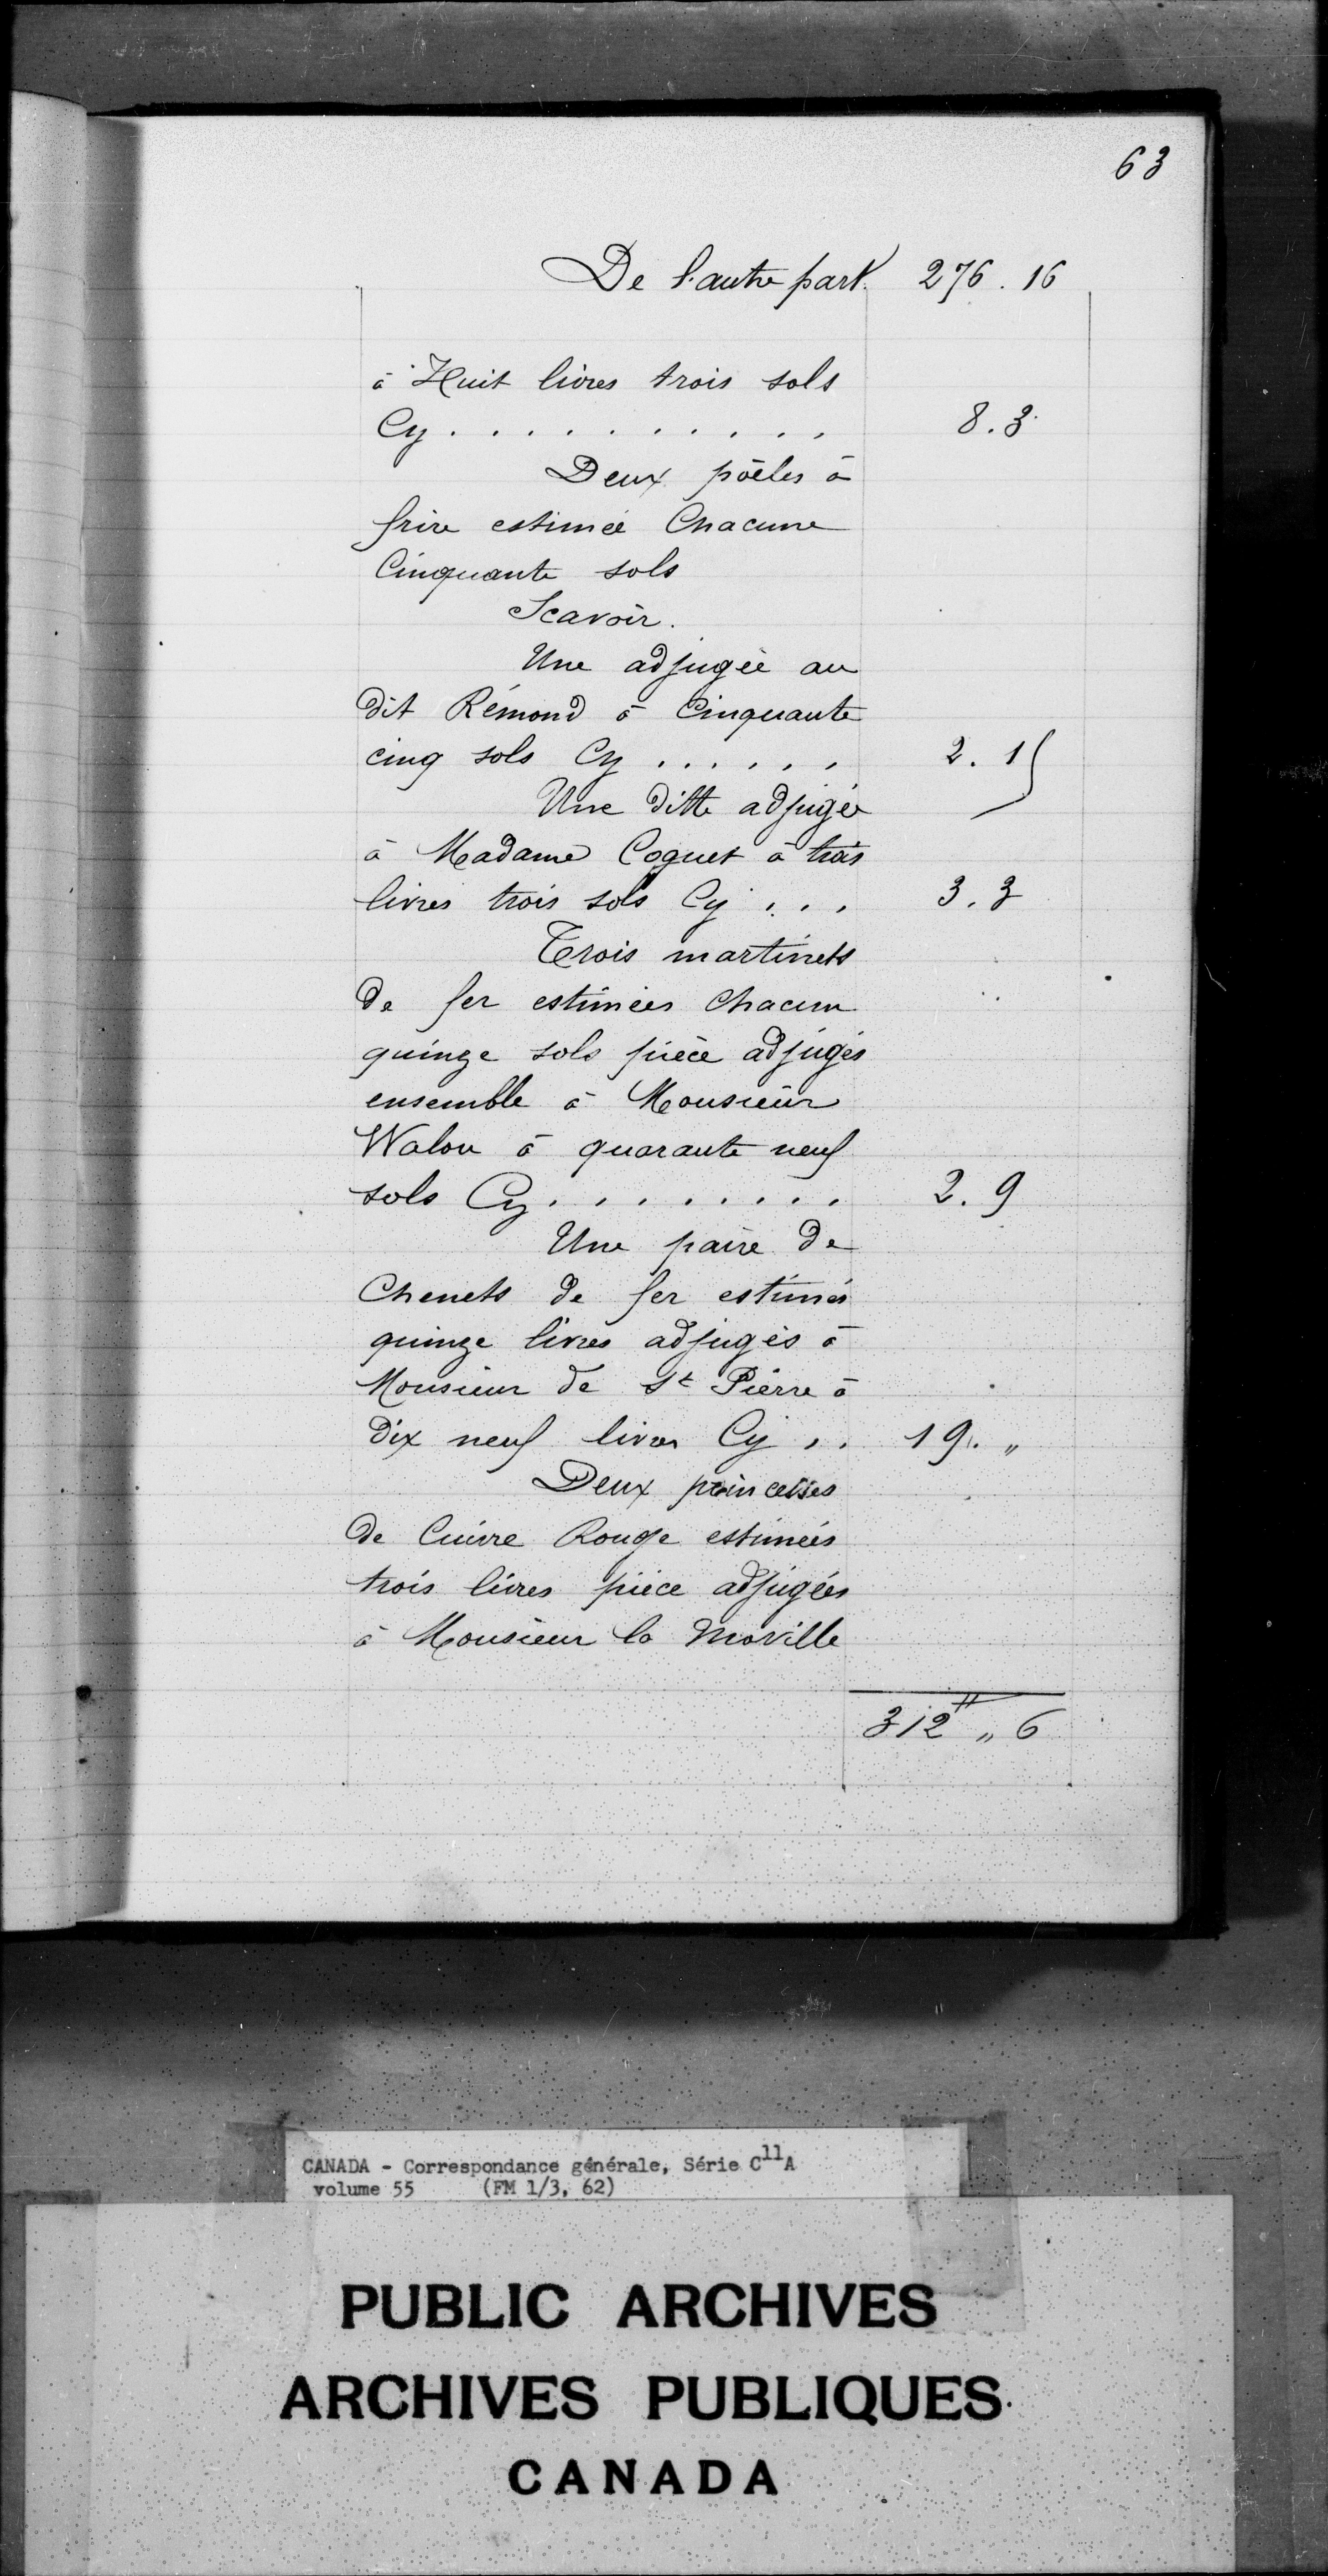 63
De l'autre part. 276 . 16
à Huit livres trois sols
Cy . . . . . . . . . . . 8 . 3
Deux pôëles à
frire estimée Chacune
Cinquante sols
Scavoir.
Une adjugée au
dit Rémond à Cinquante
cinq sols Cy . . . . . . 2 . 15
Une ditte adjugée
à Madame Coquet à trois
livres trois sols Cy . . . 3 . 3
Trois martinets
de fer estimées chacun
quinze sols pièce adjugés
ensemble à Monsieur
Walon à quarante neuf
sols Cy . . . . . . . . 2 . 9
Une paire de
Chenets de fer estimés
quinze livres adjugés à
Monsieur de St Pierre à
dix neuf livres Cy . . 19 . "
Deux princesses
de Cuivre Rouge estimées
trois livres pièce adjugées
à Monsieur la Morille
312 ₶ " 6
CANADA - Correspondance générale, Série C11A
volume 55 (FM 1/3, 62)
PUBLIC ARCHIVES
ARCHIVES PUBLIQUES
CANADA